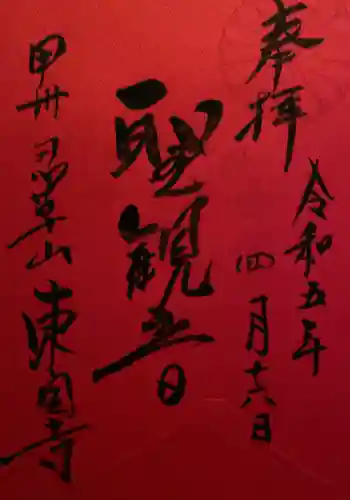 奉拝
令和五年
四月十六日
聖観音
甲州 忍草山
東圓寺